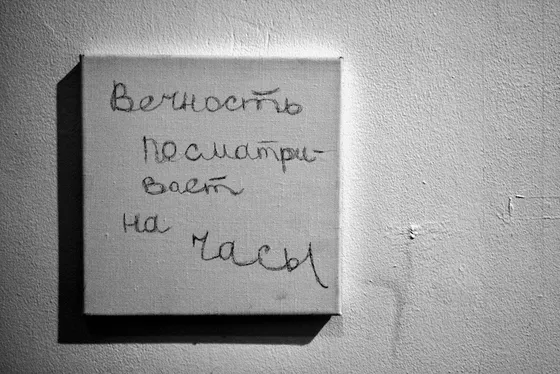 Вечность
посматри-
вает
на
часы